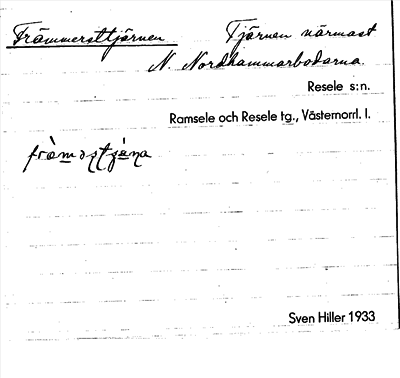 Främmersttjärnen Tjärnen närmast
N. Nordhammarbodarna.
Resele s:n.
Ramsele och Resele tg., Västernorrl. l.
Sven Hiller 1933